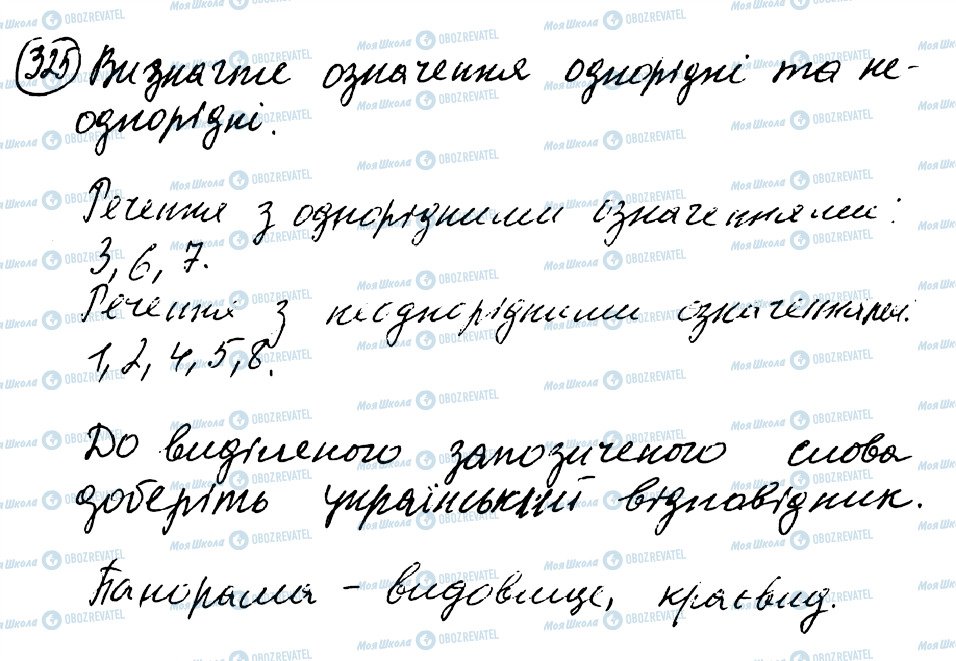 325 Визначте означення однорідні та не-
однорідні.
Речення з однорідними означеннями:
3, 6, 7.
Речення з неоднорідними означеннями.
1, 2, 4, 5, 8.
До виділеного запозиченого слова
доберіть український відповідник.
Панорама – видовище, краєвид.